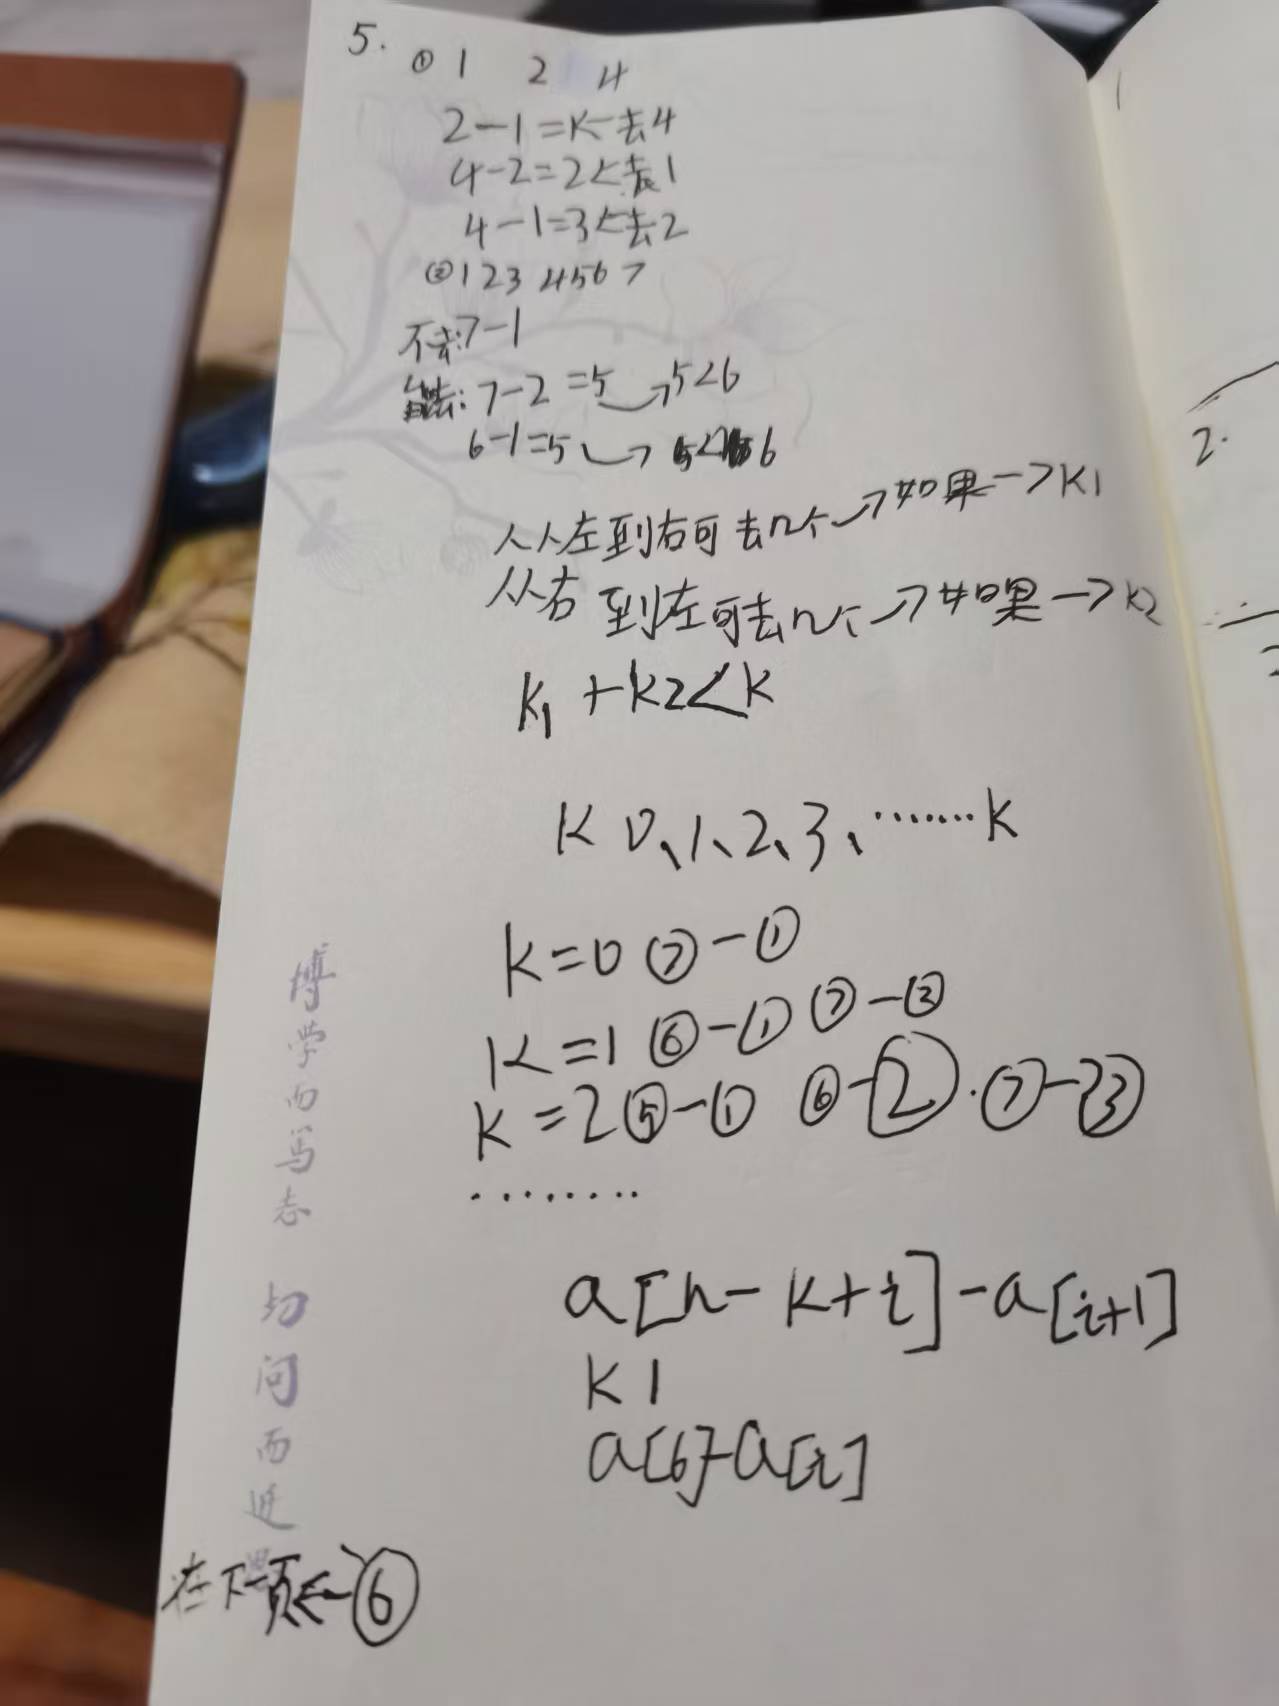 5. ① 1 2 4
2-1=K去4
4-2=2<去1
4-1=3<去2
②1 2 3 4 5 6 7
不去:7-1
去: 7-2=5→5<6
6-1=5→5<6
从左到右可去几个→如果→K1
从右到左可去几个→如果→K2
k1+k2<k
K 0、1、2、3、……k
K=0 ⑦-①
K=1 ⑥-① ⑦-②
K=2 ⑤-① ⑥-②.⑦-③
........
a[n-k+i]-a[i+1]
k1
a[6]-a[i]
在下一页←⑥
博学而笃志
切问而进
1
2.